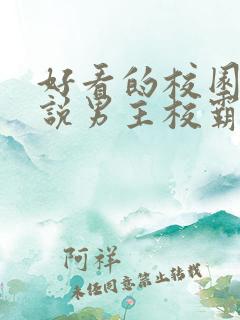 好看的校园
說男主校霸
阿祥
未经同意禁止转载